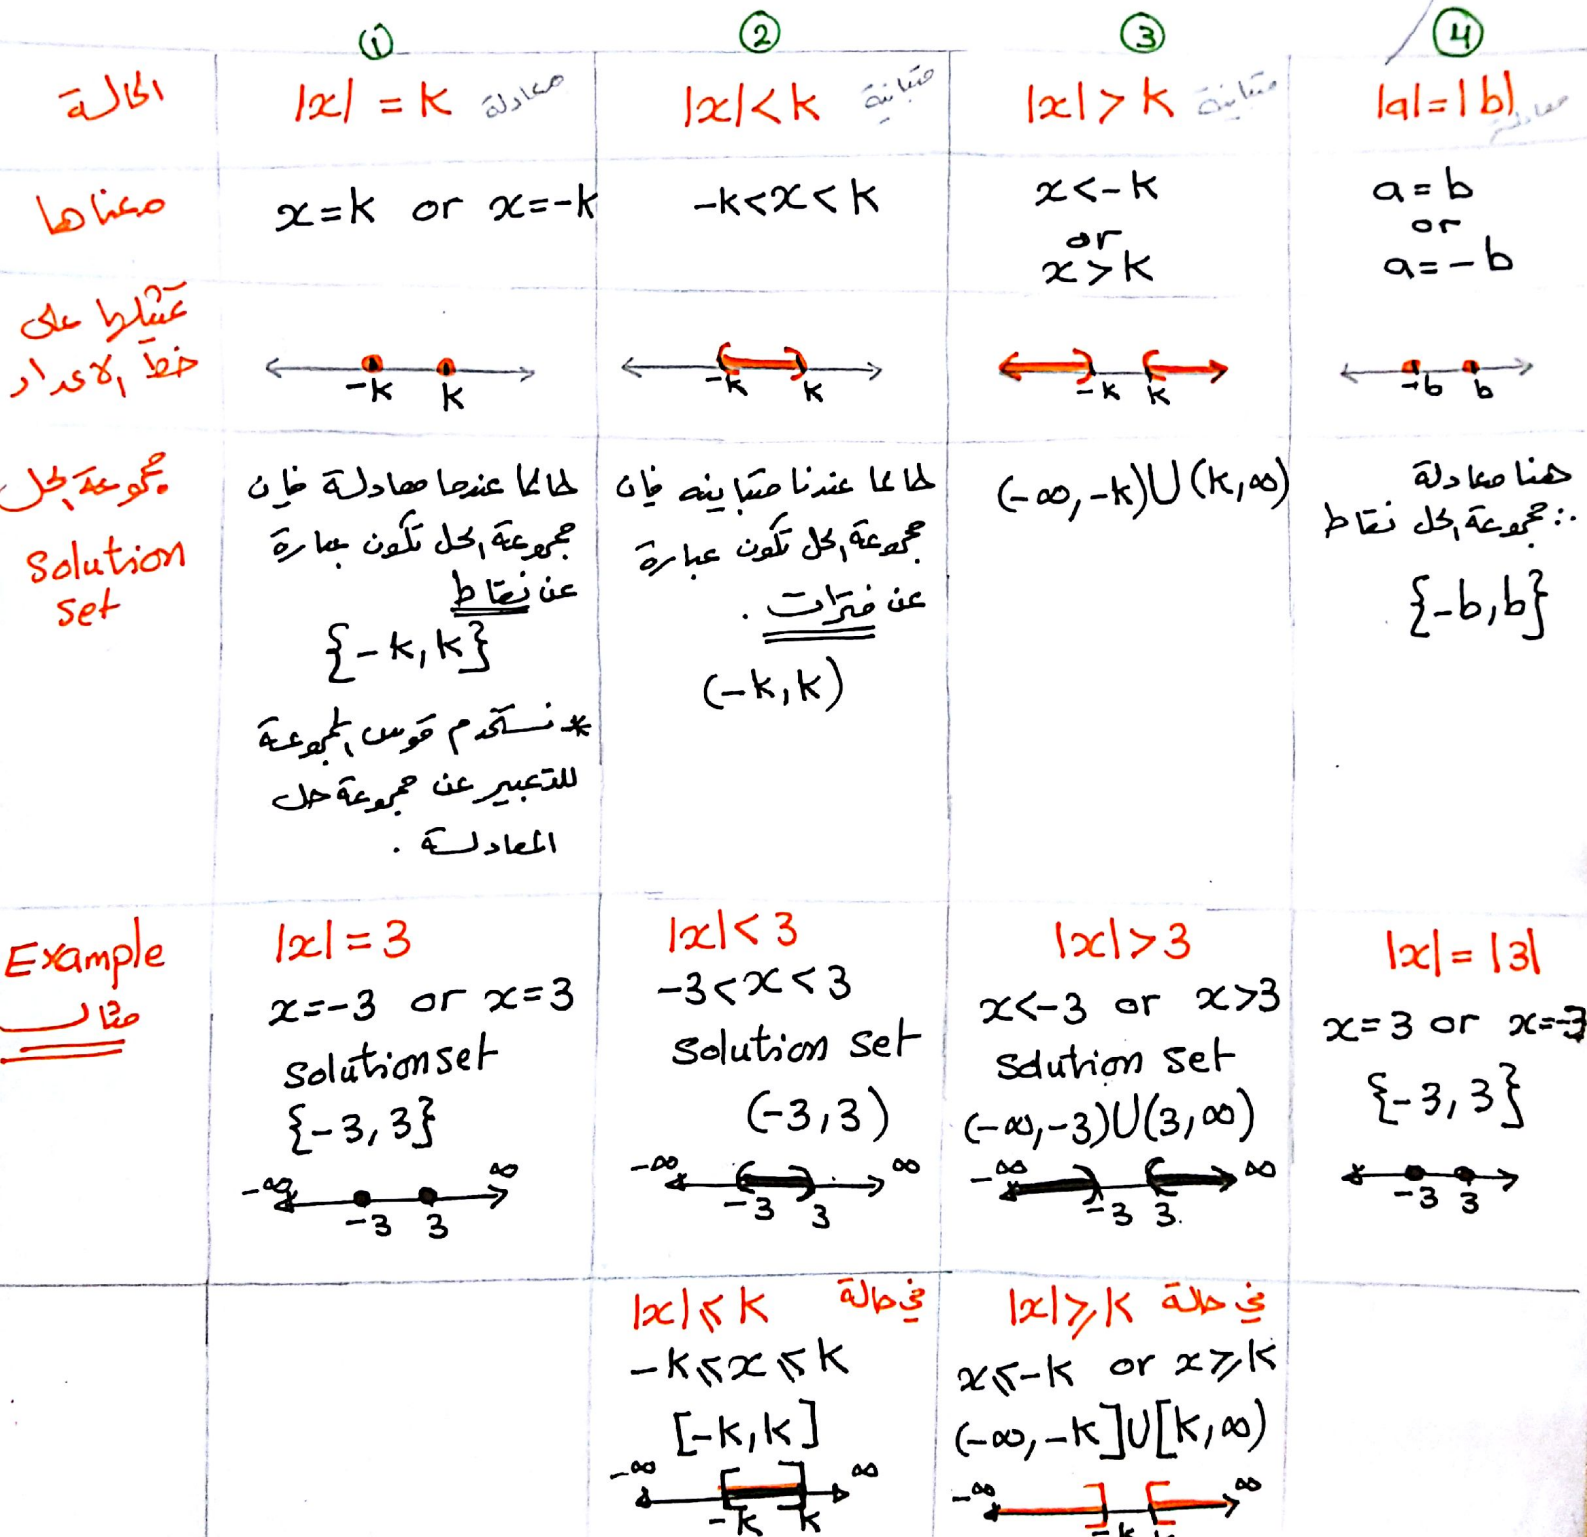 ① ② ③ ④
الحالة
|x| = k معادلة
|x| < k متباينة
|x| > k متباينة
|a| = |b| معادلة
معناها
x = k or x = -k
-k < x < k
x < -k
or
x > k
a = b
or
a = -b
تمثيلها على
خط الاعداد
-k k
-k k
-k k
-b b
مجموعة الحل
Solution
set
طالما عندما معادلة فإن
مجموعة الحل تكون عبارة
عن نقاط
{-k, k}
* نستخدم قوس المجموعة
للتعبير عن مجموعة حل
المعادلة .
طالما عندنا متباينه فإن
مجموعة الحل تكون عبارة
عن فترات .
(-k, k)
(-∞, -k) ∪ (k, ∞)
هنا معادلة
∴ مجموعة الحل نقاط
{-b, b}
Example
مثال
|x| = 3
x = -3 or x = 3
Solution set
{-3, 3}
-∞ ∞
-3 3
|x| < 3
-3 < x < 3
Solution set
(-3, 3)
-∞ ∞
-3 3
|x| > 3
x < -3 or x > 3
Solution set
(-∞, -3) ∪ (3, ∞)
-∞ ∞
-3 3
|x| = |3|
x = 3 or x = -3
{-3, 3}
-3 3
|x| ⩽ k في حالة
-k ⩽ x ⩽ k
[-k, k]
-∞ ∞
-k k
|x| ⩾ k في حالة
x ⩽ -k or x ⩾ k
(-∞, -k] ∪ [k, ∞)
-∞ ∞
-k k